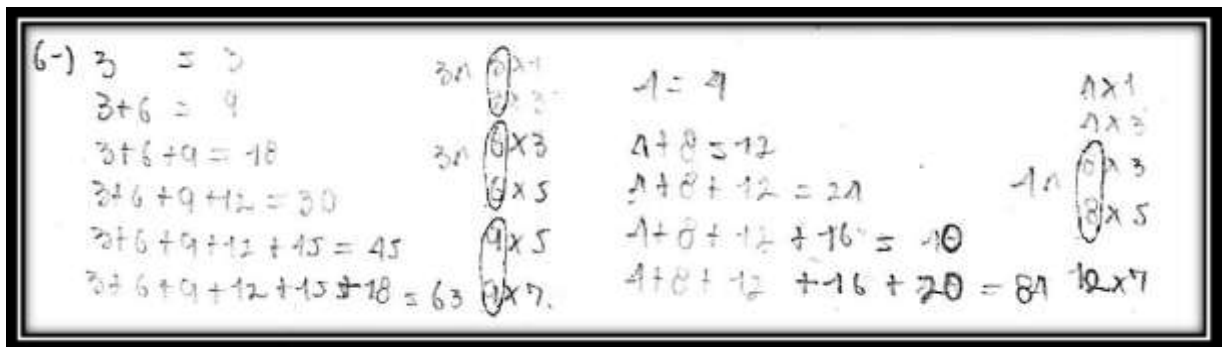 6-) 3 = 3
3+6 = 9
3+6+9 = 18
3+6+9+12 = 30
3+6+9+12+15 = 45
3+6+9+12+15+18 = 63
3n 3x1
3x3
3n 6x3
6x5
9x5
9x7.
4 = 4
4+8=12
4+8+12 = 24
4+8+12+16 = 40
4+8+12+16+20 = 84
4x1
4x3
4n 8x3
8x5
12x7